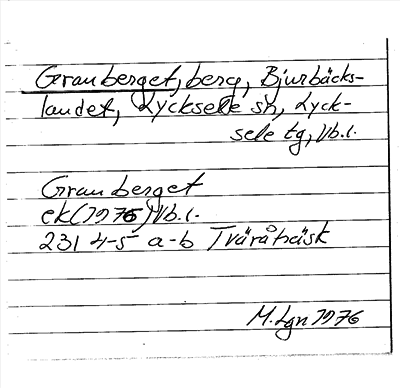 Granberget, berg, Bjurbäcks-
landet, Lycksele sn, Lyck-
sele tg, Vb.l.
Granberget
ek (1976) Vb.l.
231 4-5 a-b Tväråträsk
M. Lgn 1976